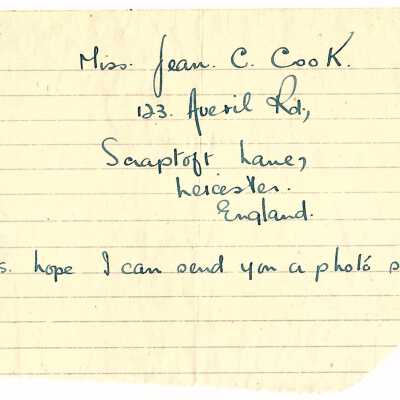 Miss. Jean. C. Cook.
123. Averil Rd.,
Scraptoft Lane,
Leicester.
England.
s. hope I can send you a photo s